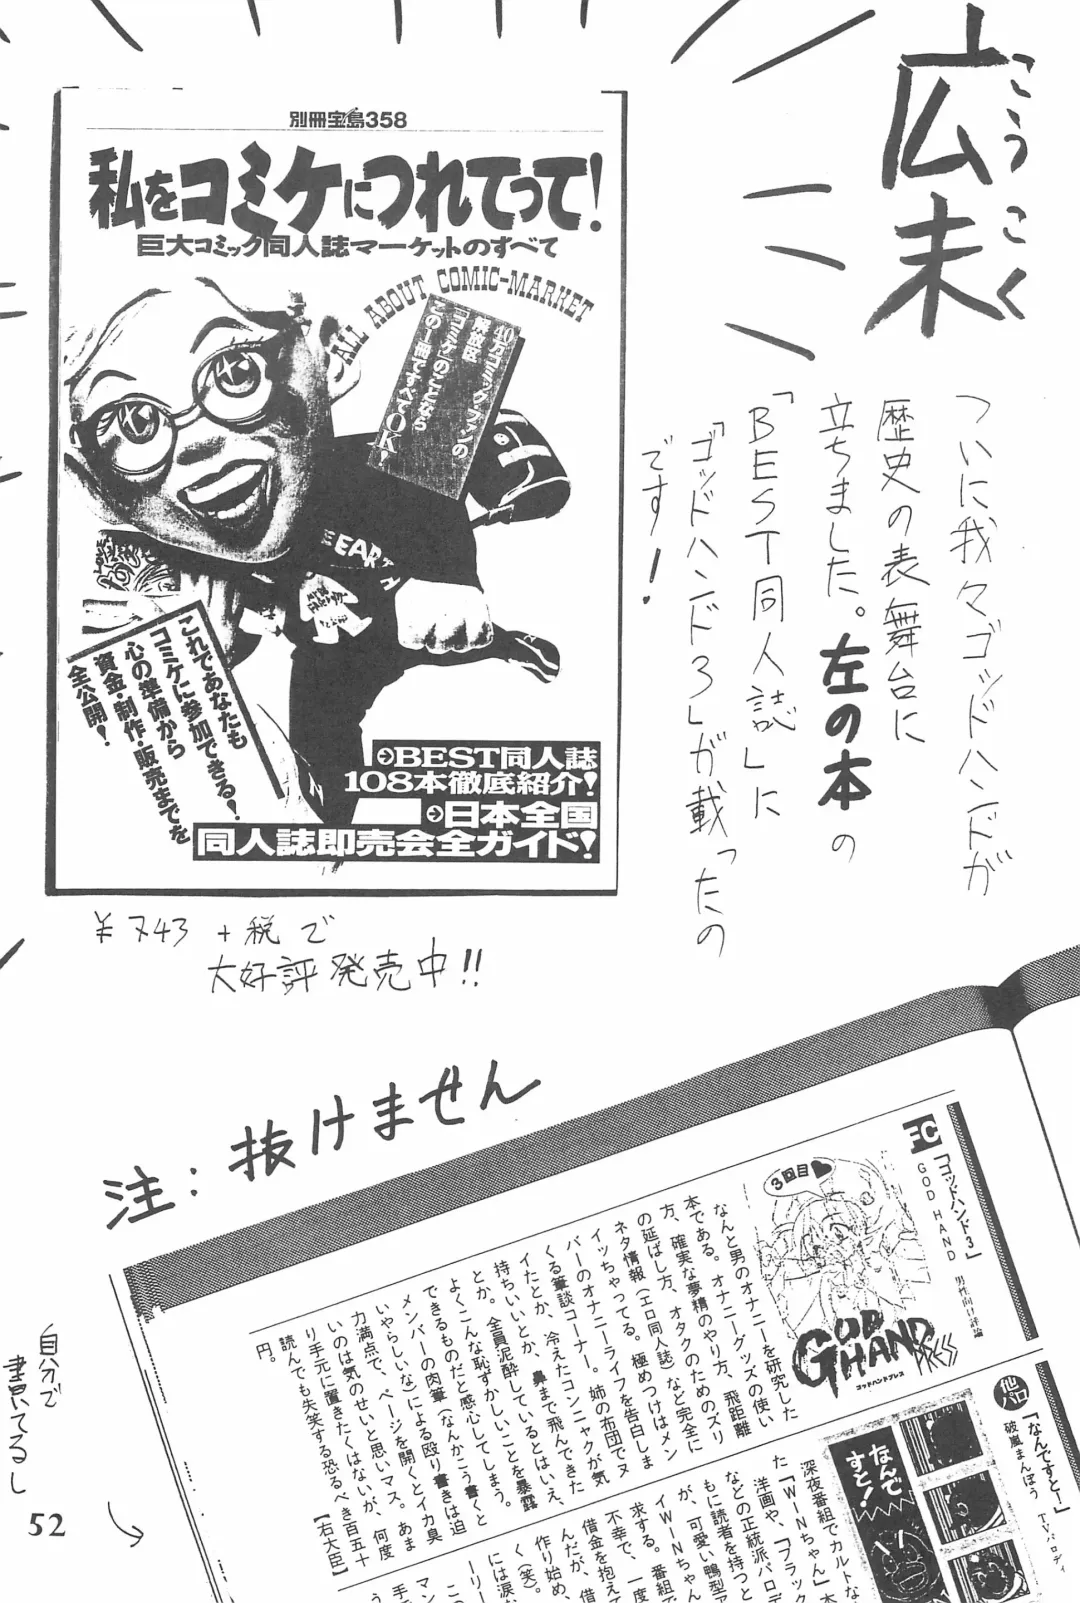 広末
こうこく
ついに我々ゴッドハンドが
歴史の表舞台に
立ちました。左の本の
「BEST同人誌」に
「ゴッドハンド3」が載ったの
です!
別冊宝島358
私をコミケにつれてって!
巨大コミック同人誌マーケットのすべて
ALL ABOUT COMIC-MARKET
40万コミックファンの
解放区
「コミケ」のことなら
この1冊ですべてOK!
EARTH
これであなたも
コミケに参加できる!
心の準備から
資金・制作・販売までを
全公開!
BEST同人誌
108本徹底紹介!
日本全国
同人誌即売会全ガイド!
¥743+税で
大好評発売中!!
注:抜けません
「ゴッドハンド3」
GOD HAND
男性向け評論
3回目
GOD HAND PRESS
ゴッドハンドプレス
なんと男のオナニーを研究した
本である。オナニーグッズの使い
方、確実な夢精のやり方、飛距離
の延ばし方、オタクのためのズリ
ネタ情報(エロ同人誌)など完全に
イッちゃってる。極めつけはメン
バーのオナニーライフを告白しま
くる筆談コーナー。姉の布団でヌ
イたとか、冷えたコンニャクが気
持ちいいとか、鼻まで飛んできた
とか。全員泥酔しているとはいえ、
よくこんな恥ずかしいことを暴露
できるものだと感心してしまう。
メンバーの肉筆(なんかこう書くと
いやらしいな)による殴り書きは迫
力満点で、ページを開くとイカ臭
いのは気のせいと思いマス。あま
り手元に置きたくはないが、何度
読んでも失笑する恐るべき百五十
円。
【右大臣】
他パロ
「なんですとー!」
破嵐まんぼう
TVパロディ
なんで
すと!
深夜番組でカルトな
た「WINちゃん」本
洋画や、「ブラック
などの正統派パロデ
もに読者を持つと
が、可愛い鴨型ア
イWINちゃん
求する。番組で
不幸で、一度
借金を抱えて
んだが、借
作り始め、
く(笑)。
には涙
ーリー
こ
マン
手
う
自分で
書いてるし
52